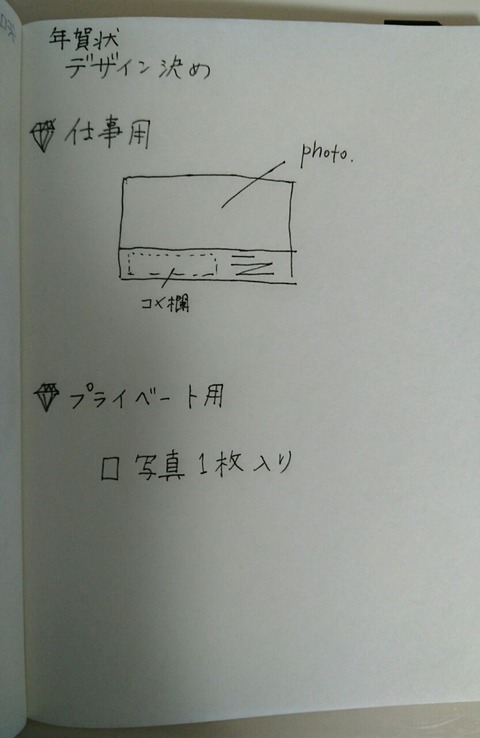 年賀状
デザイン決め
仕事用
photo.
コメ欄
プライベート用
□ 写真1枚入り